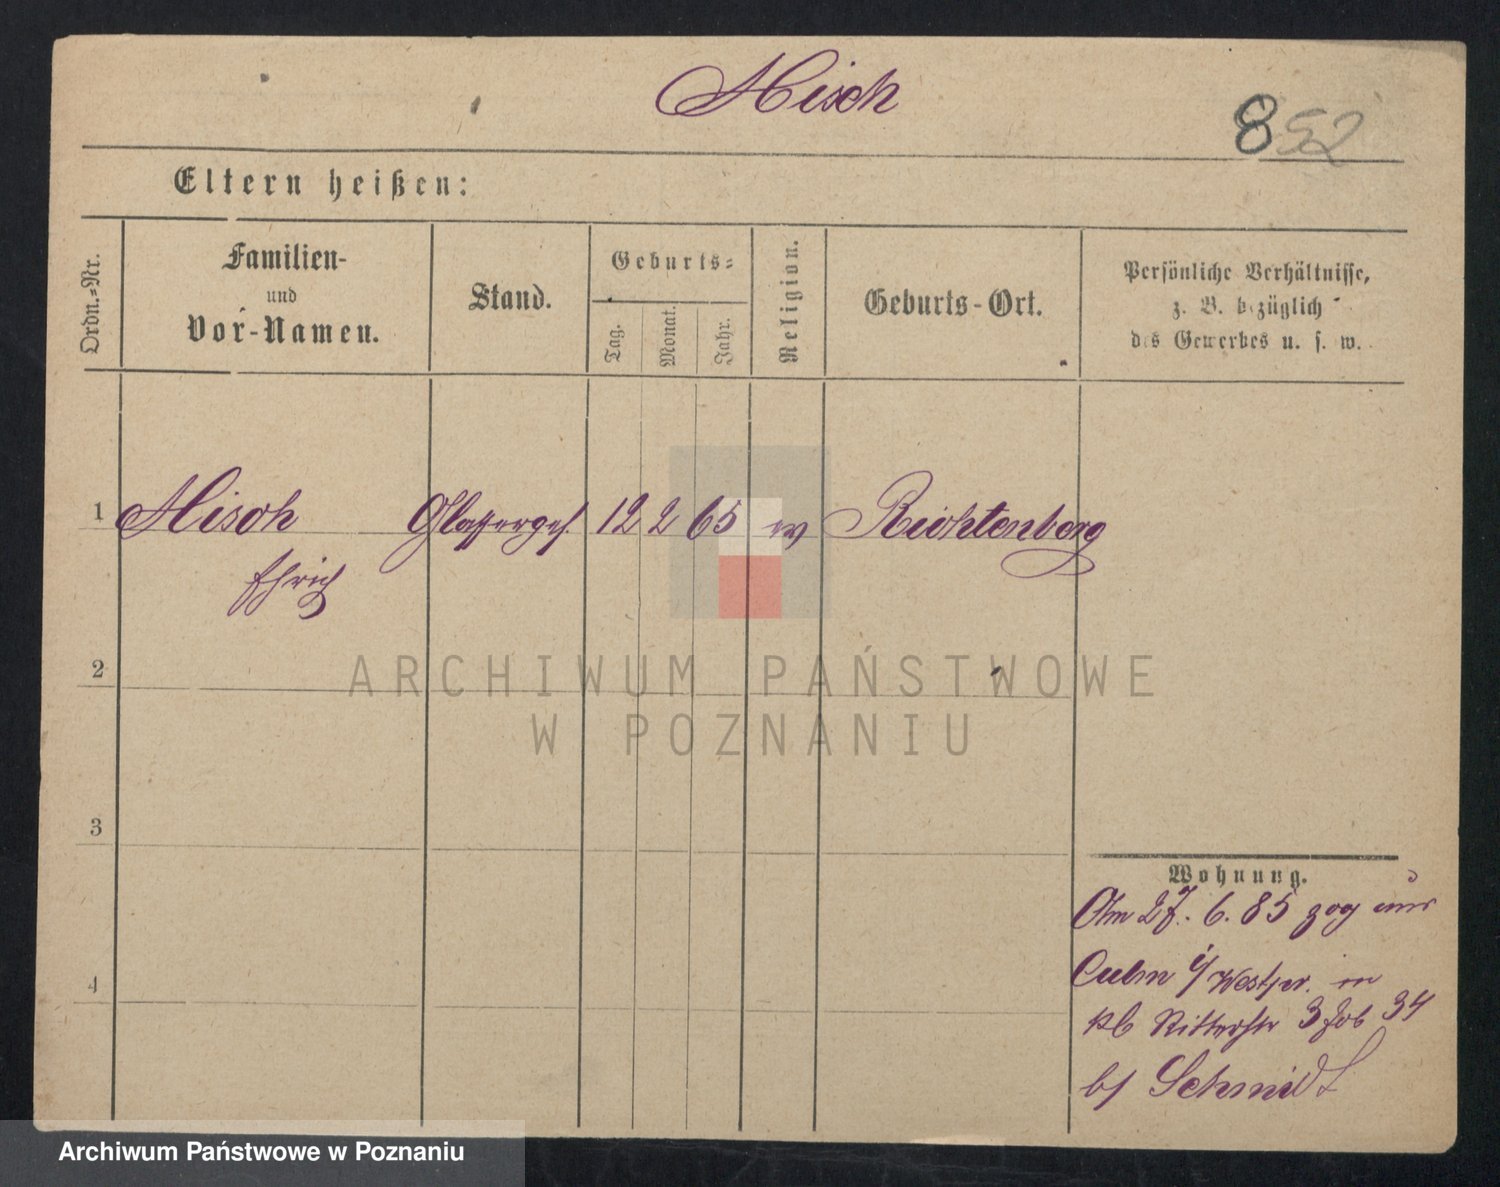 Misch
852
Eltern heißen:
Ordn.-Nr.
Familien-
und
Vor-Namen.
Stand.
Geburts-
Tag.
Monat.
Jahr.
Religion.
Geburts-Ort.
Persönliche Verhältnisse,
z. B. bezüglich
des Gewerbes u. s. w.
1 Misch Glasserges. 12 2 65 ev Richtenberg
2
3
4
Wohnung.
Am 27. 6. 85 zog aus
Culm i/ Westpr. in
Ritterstr 3 34
b/ Schmidt
ARCHIWUM PAŃSTWOWE
W POZNANIU
Archiwum Państwowe w Poznaniu